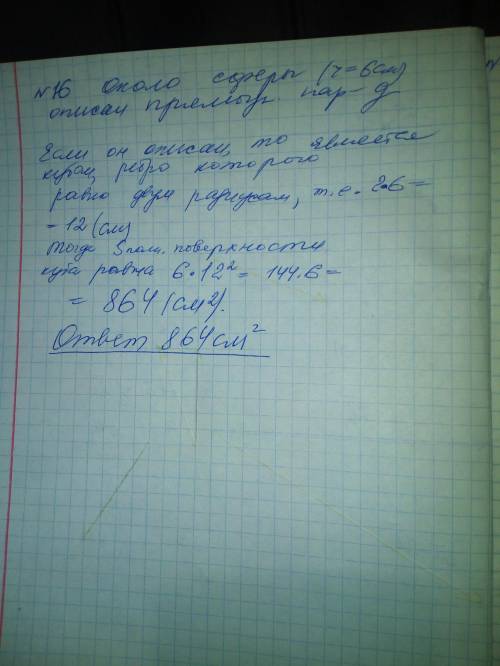 №16 Около сферы (r=6см)
описан прямоуг. пар-д
Если он описан, то является
кубом, ребро которого
равно двум радиусам, т.е. 2·6=
=12 (см)
Тогда Sпол. поверхности
куба равна 6·12²= 144·6=
= 864 (см²).
Ответ 864см²